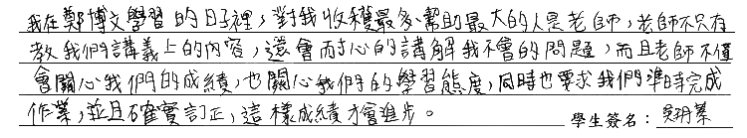 我在鄭博文學習的日子裡，對我收穫最多幫助最大的人是老師，老師不只有
教我們講義上的內容，還會耐心的講解我不會的問題，而且老師不僅
會關心我們的成績，也關心我們的學習態度，同時也要求我們準時完成
作業，並且確實訂正，這樣成績才會進步。
學生簽名：吳玥蓁